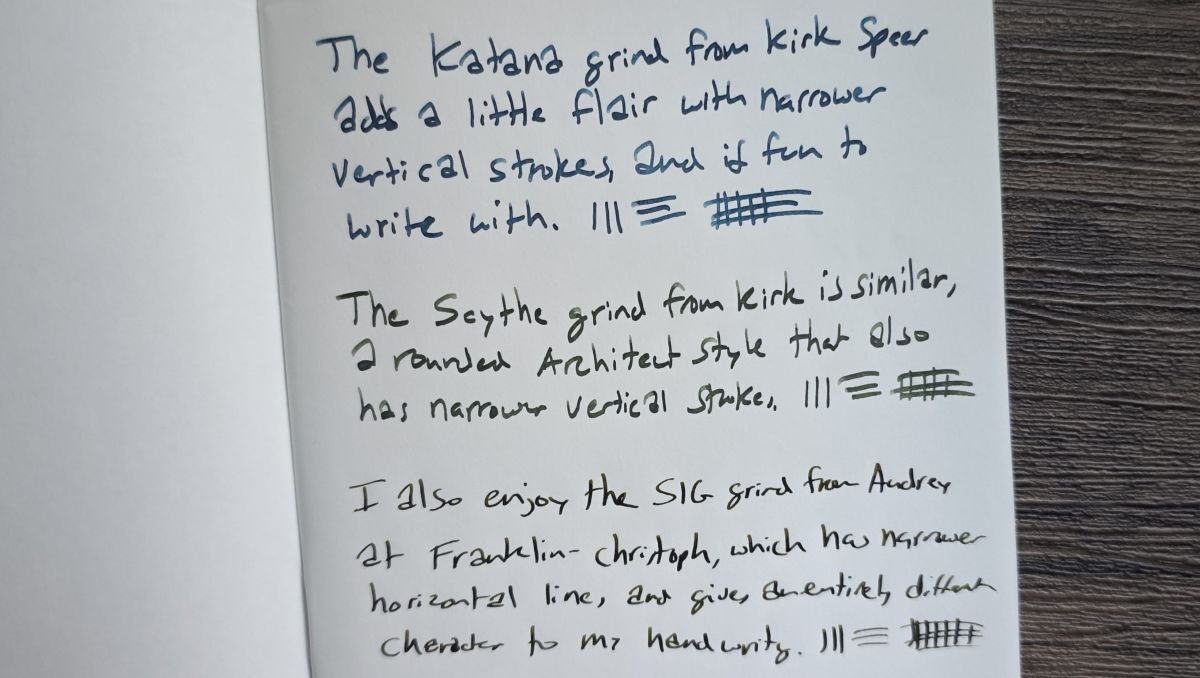 The Katana grind from Kirk Speer
adds a little flair with narrower
vertical strokes, and is fun to
write with.
The Scythe grind from Kirk is similar,
a rounded Architect style that also
has narrower vertical strokes.
I also enjoy the SIG grind from Audrey
at Franklin-Christoph, which has narrower
horizontal lines, and gives an entirely different
character to my handwriting.